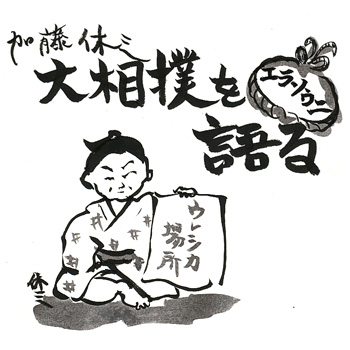 加藤休ミ
大相撲を
エラソウニ
語る
ウレシカ
場所
休ミ